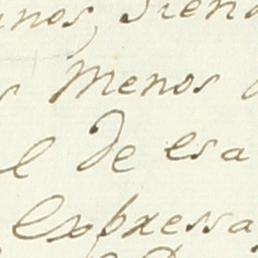 nos, Siend
s Menos d
l de esa
expressa